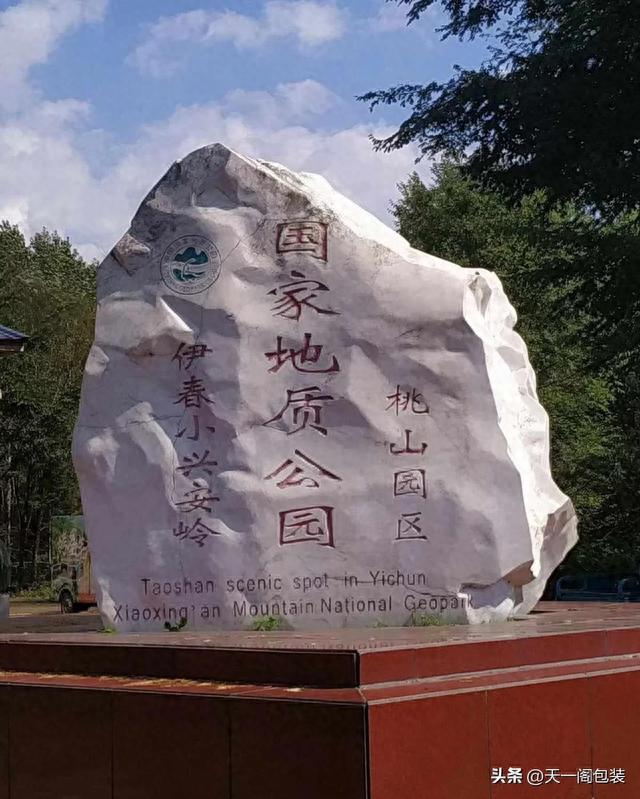 伊春小兴安岭
国家地质公园
桃山园区
Taoshan scenic spot in Yichun
Xiaoxing'an Mountain National Geopark
头条 @天一阁包装